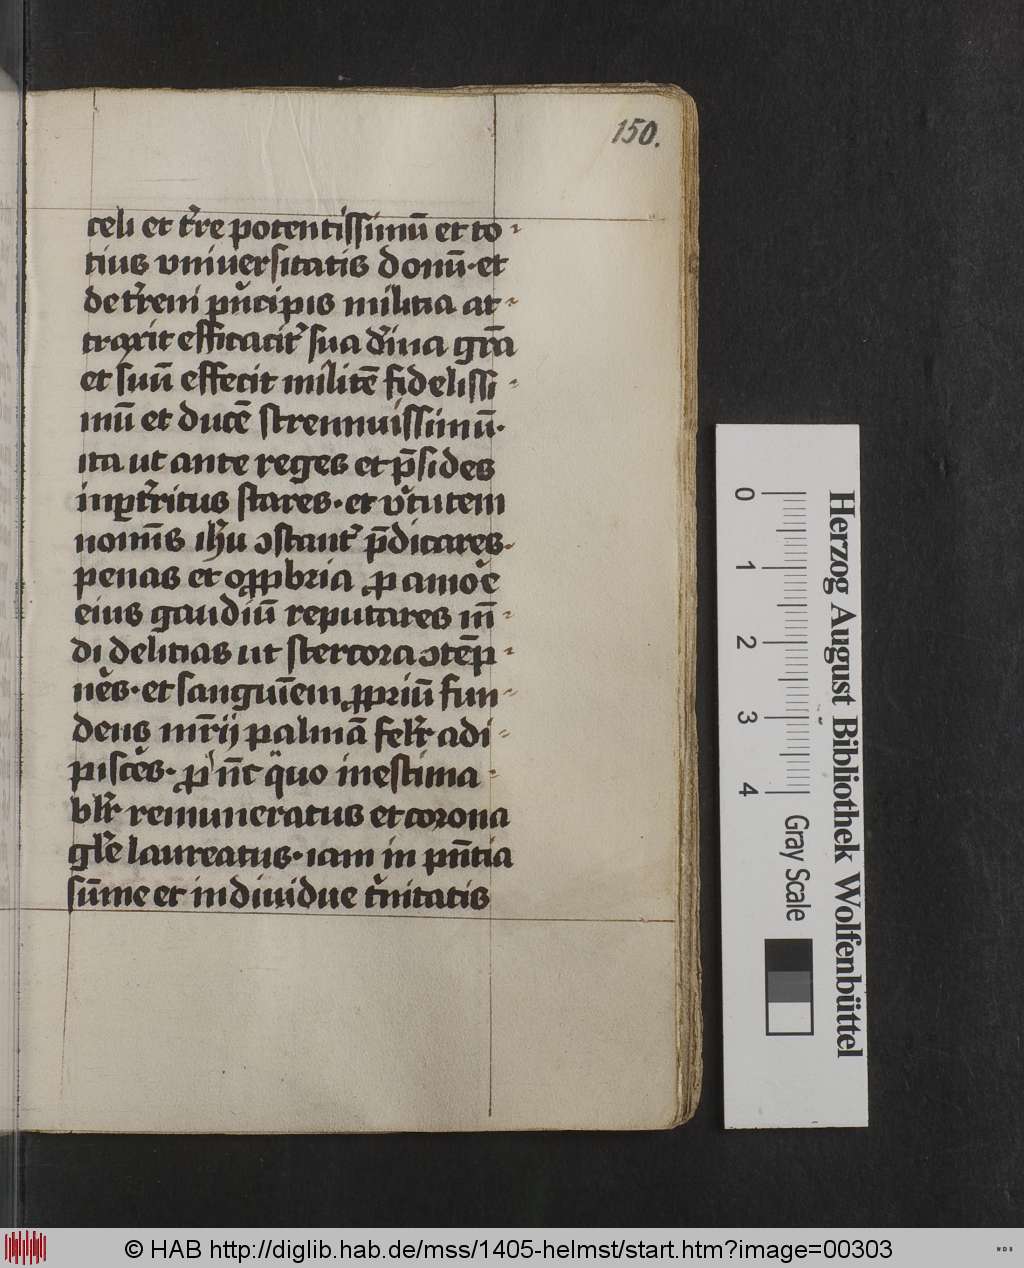 150.
celi et t̉re potentissimū et to-
tius vniuersitatis donū·et
de t̉reni pͥncipis militia at-
traxit efficacit̉ sua dͥina gr̄a
et suū effecit militē fidelissi-
mū et ducē strennuissimū·
ita ut ante reges et p̄sides
inꝑt̉ritus stares·et v̉tutem
nomīs ih̉u ↄstant̉ p̄dicares·
penas et oꝓpbria ꝓ amỏe
eius gaudiū reputares mū-
di delitias ut stercora ↄtēp-
n̉es·et sanguīem ꝓpriū fun-
dens mr̄ij palmā felr̉ adi-
pisc̉es· ꝓ n̄c qͥuo inestima-
blr̉ remuneratus et corona
gl̉e laureatus·iam in pn̄tia
sūme et indiuidue tͥnitatis
Herzog August Bibliothek Wolfenbüttel
0 1 2 3 4 Gray Scale
© HAB http://diglib.hab.de/mss/1405-helmst/start.htm?image=00303